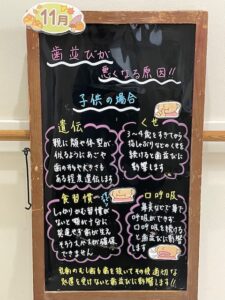 11月
歯並びが
悪くなる原因!!
子供の場合
遺伝
親に顔や体型が
似るようにあごや
歯の形や大きさも
ある程度遺伝します
くせ
3~4歳をすぎてから
指しゃぶりなどのくせを
続けると歯並びに
影響します
食習慣
しっかりかむ習慣が
ないと顎が十分に
発達せず歯が生え
そろうスペースが確保
できません
口呼吸
鼻炎などで鼻で
呼吸ができず、
口呼吸を続ける
と歯並びに影響
します
乳歯のむし歯を歯を抜いてその後適切な
処置を受けないと歯並びに影響します!!